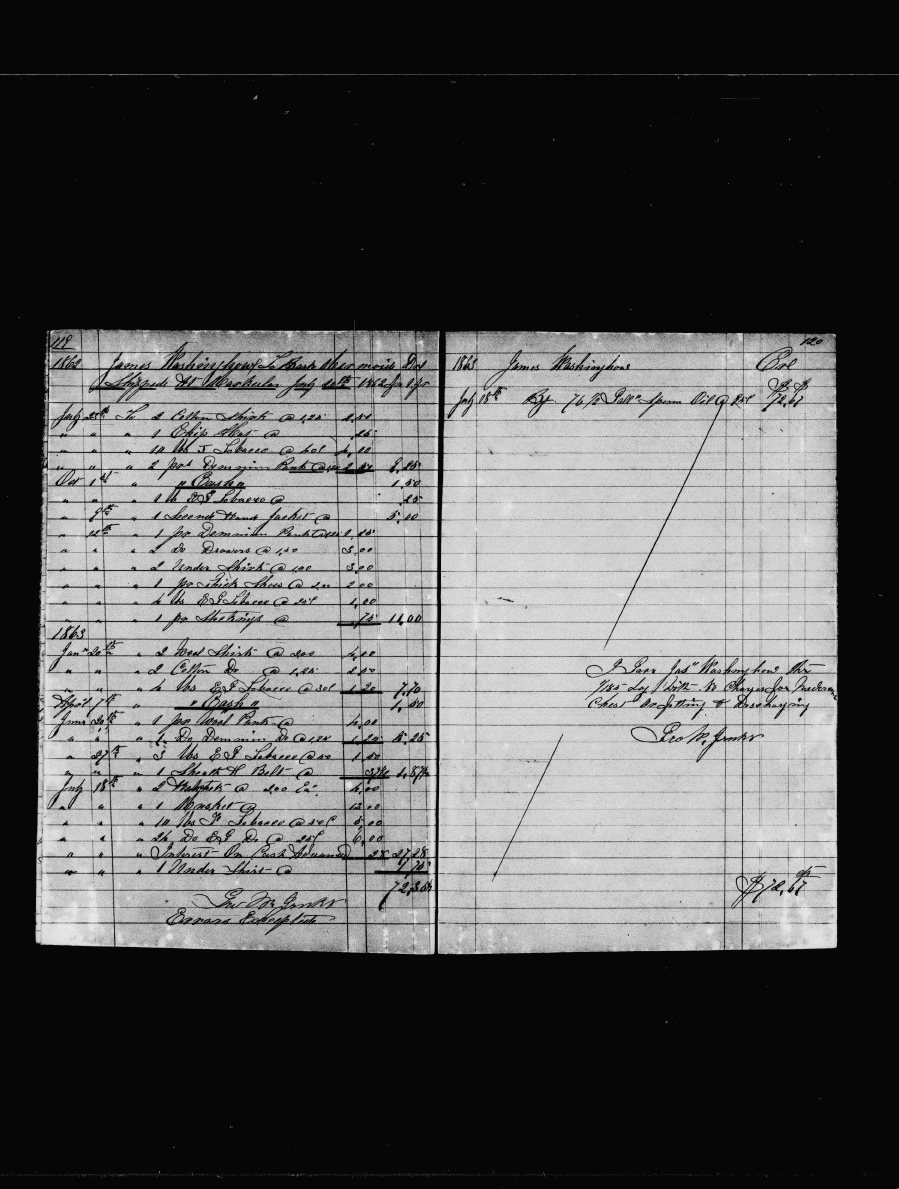 1862 James Washington To Bark Dr
Shipped At July 1862 for
July 25th To 2 Cotton Shirts @ 1,25 2.50
" " " 1 Chip Hat @ .25
" " " 10 lbs Tobacco @ 40¢ 4.00
" " " 2 prs Demmin Pants @ 8.25
Oct 1st " " Cash " 1.50
" " 1 lb Tobacco @ .25
" 9th " 1 Second Hand Jacket @ 5.00
" " 1 pr Demmin Pants @ 1.25
" " " 2 Do Drawers @ 1,50 3.00
" " " 2 Under Shirts @ 1,50 3.00
" " " 1 pr Thick Shoes @ 200 2.00
" " " 4 lbs E G Tobacco @ 25¢ 1.00
" " " 1 pr Stockings @ .75 11.00
1863
Jan 20th " 2 Wool Shirts @ 200 4.00
" " " 2 Cotton Do @ 1,25 2.50
" " " 4 lbs E G Tobacco @ 30¢ 1.20 7.70
April 7th " " Cash " 1.50
June 20th " 1 pr Wool Pants @ 4.00
" " " 1 Do Demmin Do @ 1,25 5.25
" 27th " 3 lbs E G Tobacco @ 50 1.50
" " " 1 Sheath & Belt @ 37½ 1.87½
July 18th " 2 @ 200 Ea. 4.00
" " " 1 Musket @ 12.00
" " " 10 lbs Tobacco @ 50¢ 5.00
" " " 24 Do E G Do @ 25¢ 6.00
" " " Interest On Cash Advanced .28 27.28
" " " 1 Under Shirt @
Geo W. Jenks
Errors Excepted
120
1863 James Washington
July 18th By 76 Galls Sperm Oil @ 72.67
Jas Washington
Lay With No Charges for Medicine
Chest Or fitting & Discharging
Geo W. Jenks
$72.67